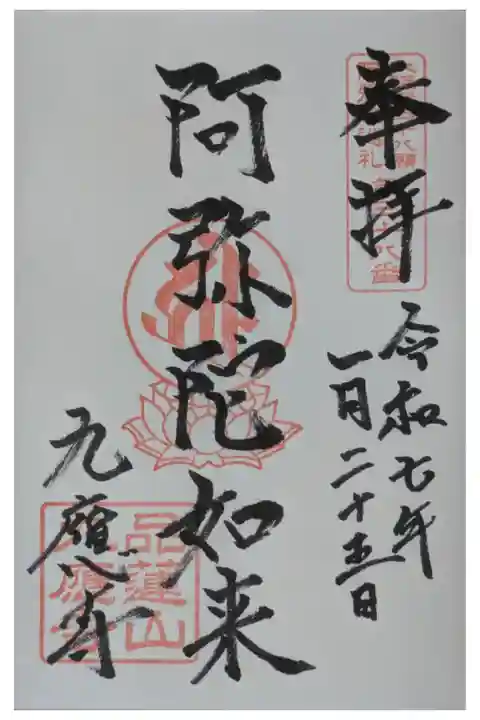 奉拝
令和七年
一月二十五日
阿弥陀如来
九應寺
品蓮山
九應寺